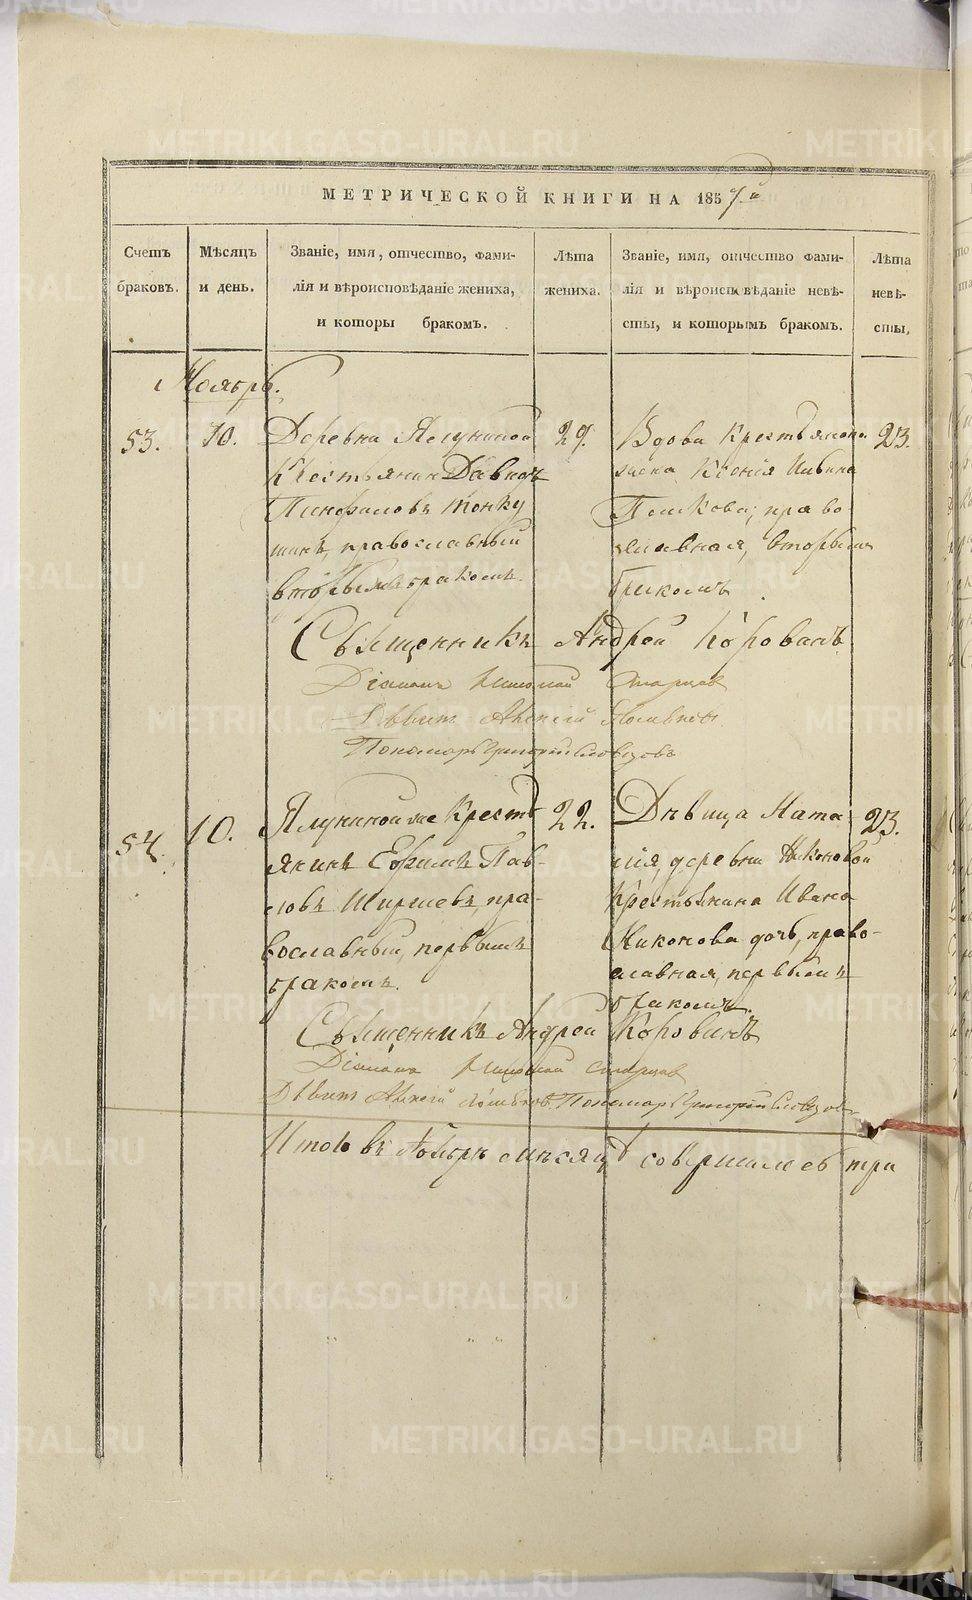 МЕТРИЧЕСКОЙ КНИГИ НА 1857й
Счетъ браковъ.
Мѣсяцъ и день.
Званіе, имя, отчество, фами-
лія и вѣроисповѣданіе жениха,
и которы бракомъ.
Лѣта жениха.
Званіе, имя, отчество фами-
лія и вѣроисповѣданіе невѣ-
сты, и которымъ бракомъ.
Лѣта невѣ-
сты.
Ноябрь.
53. 10.
Деревни Ялуниной
Крестьянин Давидъ
Панфиловъ Тонку
шинъ, православный
вторымъ бракомъ.
29.
Вдова Крестьянска
Ксенія
православная, вторымъ
бракомъ.
23.
Священникъ Андрей Коровинъ
Діаконъ Николай Старцев
Алексей
Пономарь Григорій Словцовъ
54. 10.
Ялуниной же Крестъ
янинъ Ефимъ Пав-
ловъ Ширшевъ, пра-
вославный, первымъ
бракомъ.
22.
Дѣвица Ната
лія, деревни Никоновой
Крестьянина Ивана
Никонова дочь, право-
славная, первымъ
бракомъ.
23.
Священникъ Андрей Коровинъ
Діаконъ Николай Старцев
Алексей Пономарь Григорій Словцовъ
Итого въ Ноябрѣ мѣсяцѣ совершилось три
METRIKI.GASO-URAL.RU